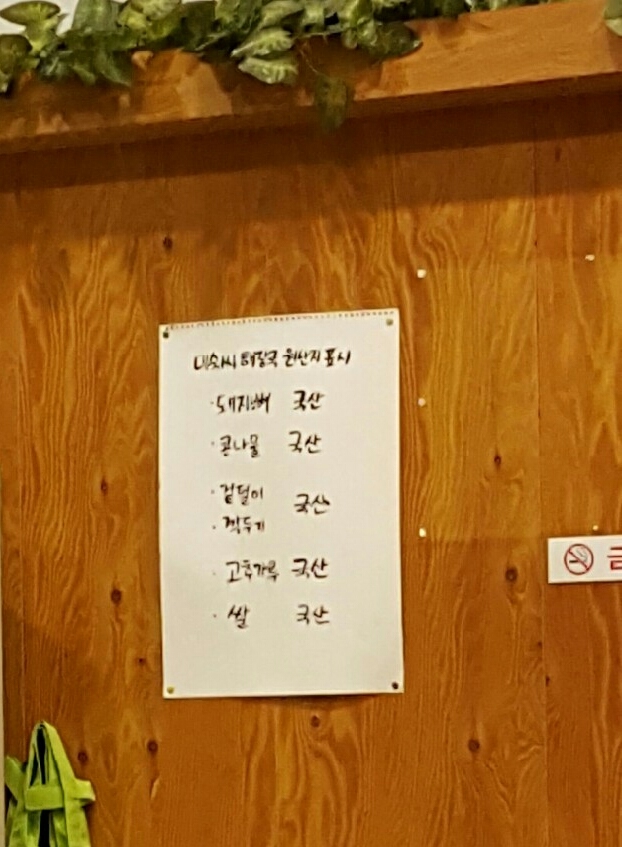 해장국 원산지 표시
· 돼지뼈 국산
· 콩나물 국산
· 겉절이 국산
· 깍두기
· 고추가루 국산
· 쌀 국산
금